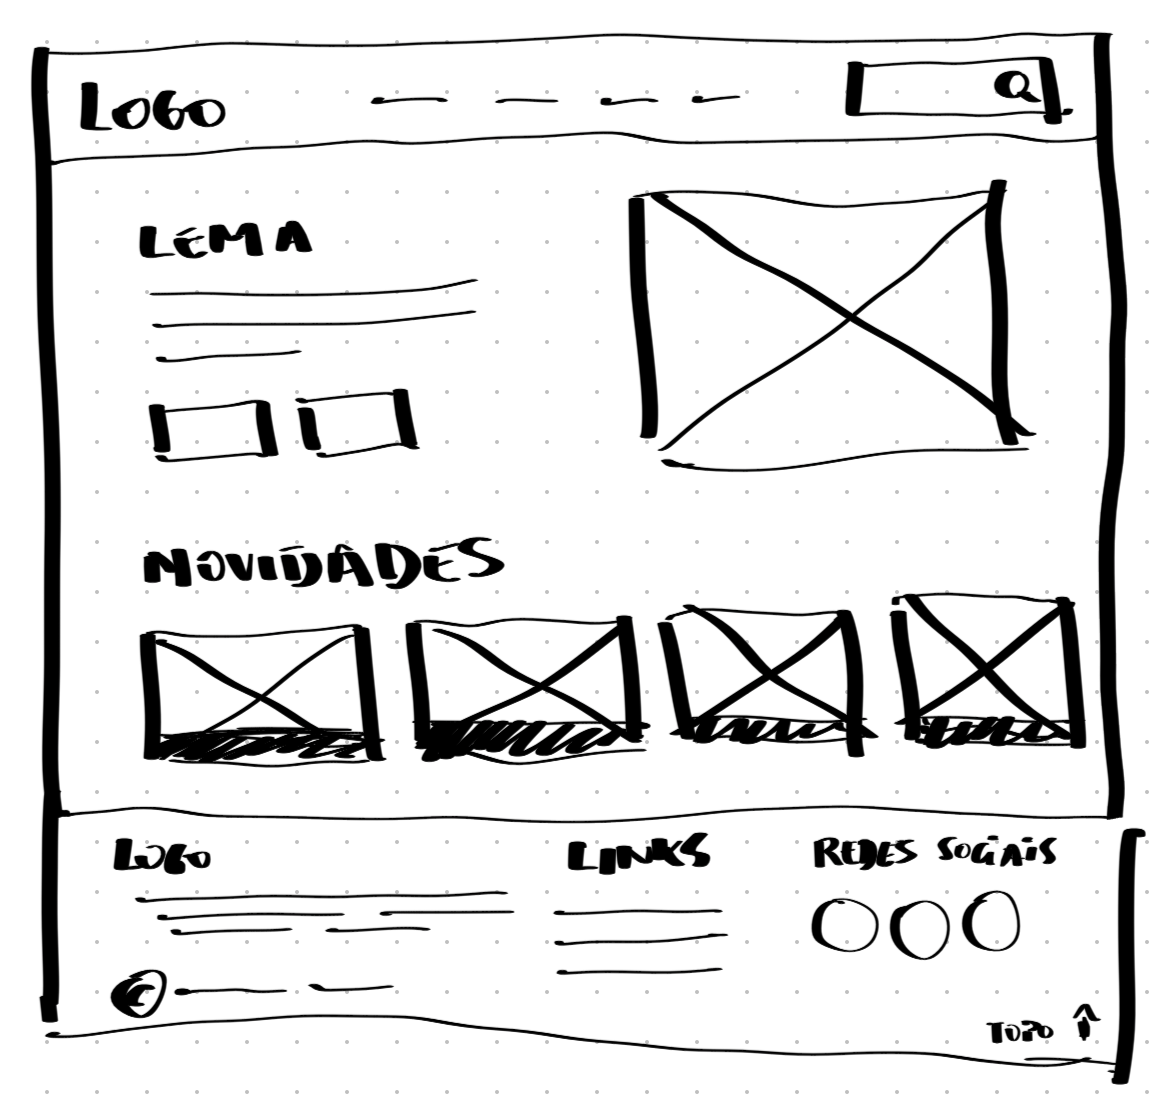 LOGO
LEMA
NOVIDADES
LOGO
LINKS
REDES SOCIAIS
©
TOPO ↑